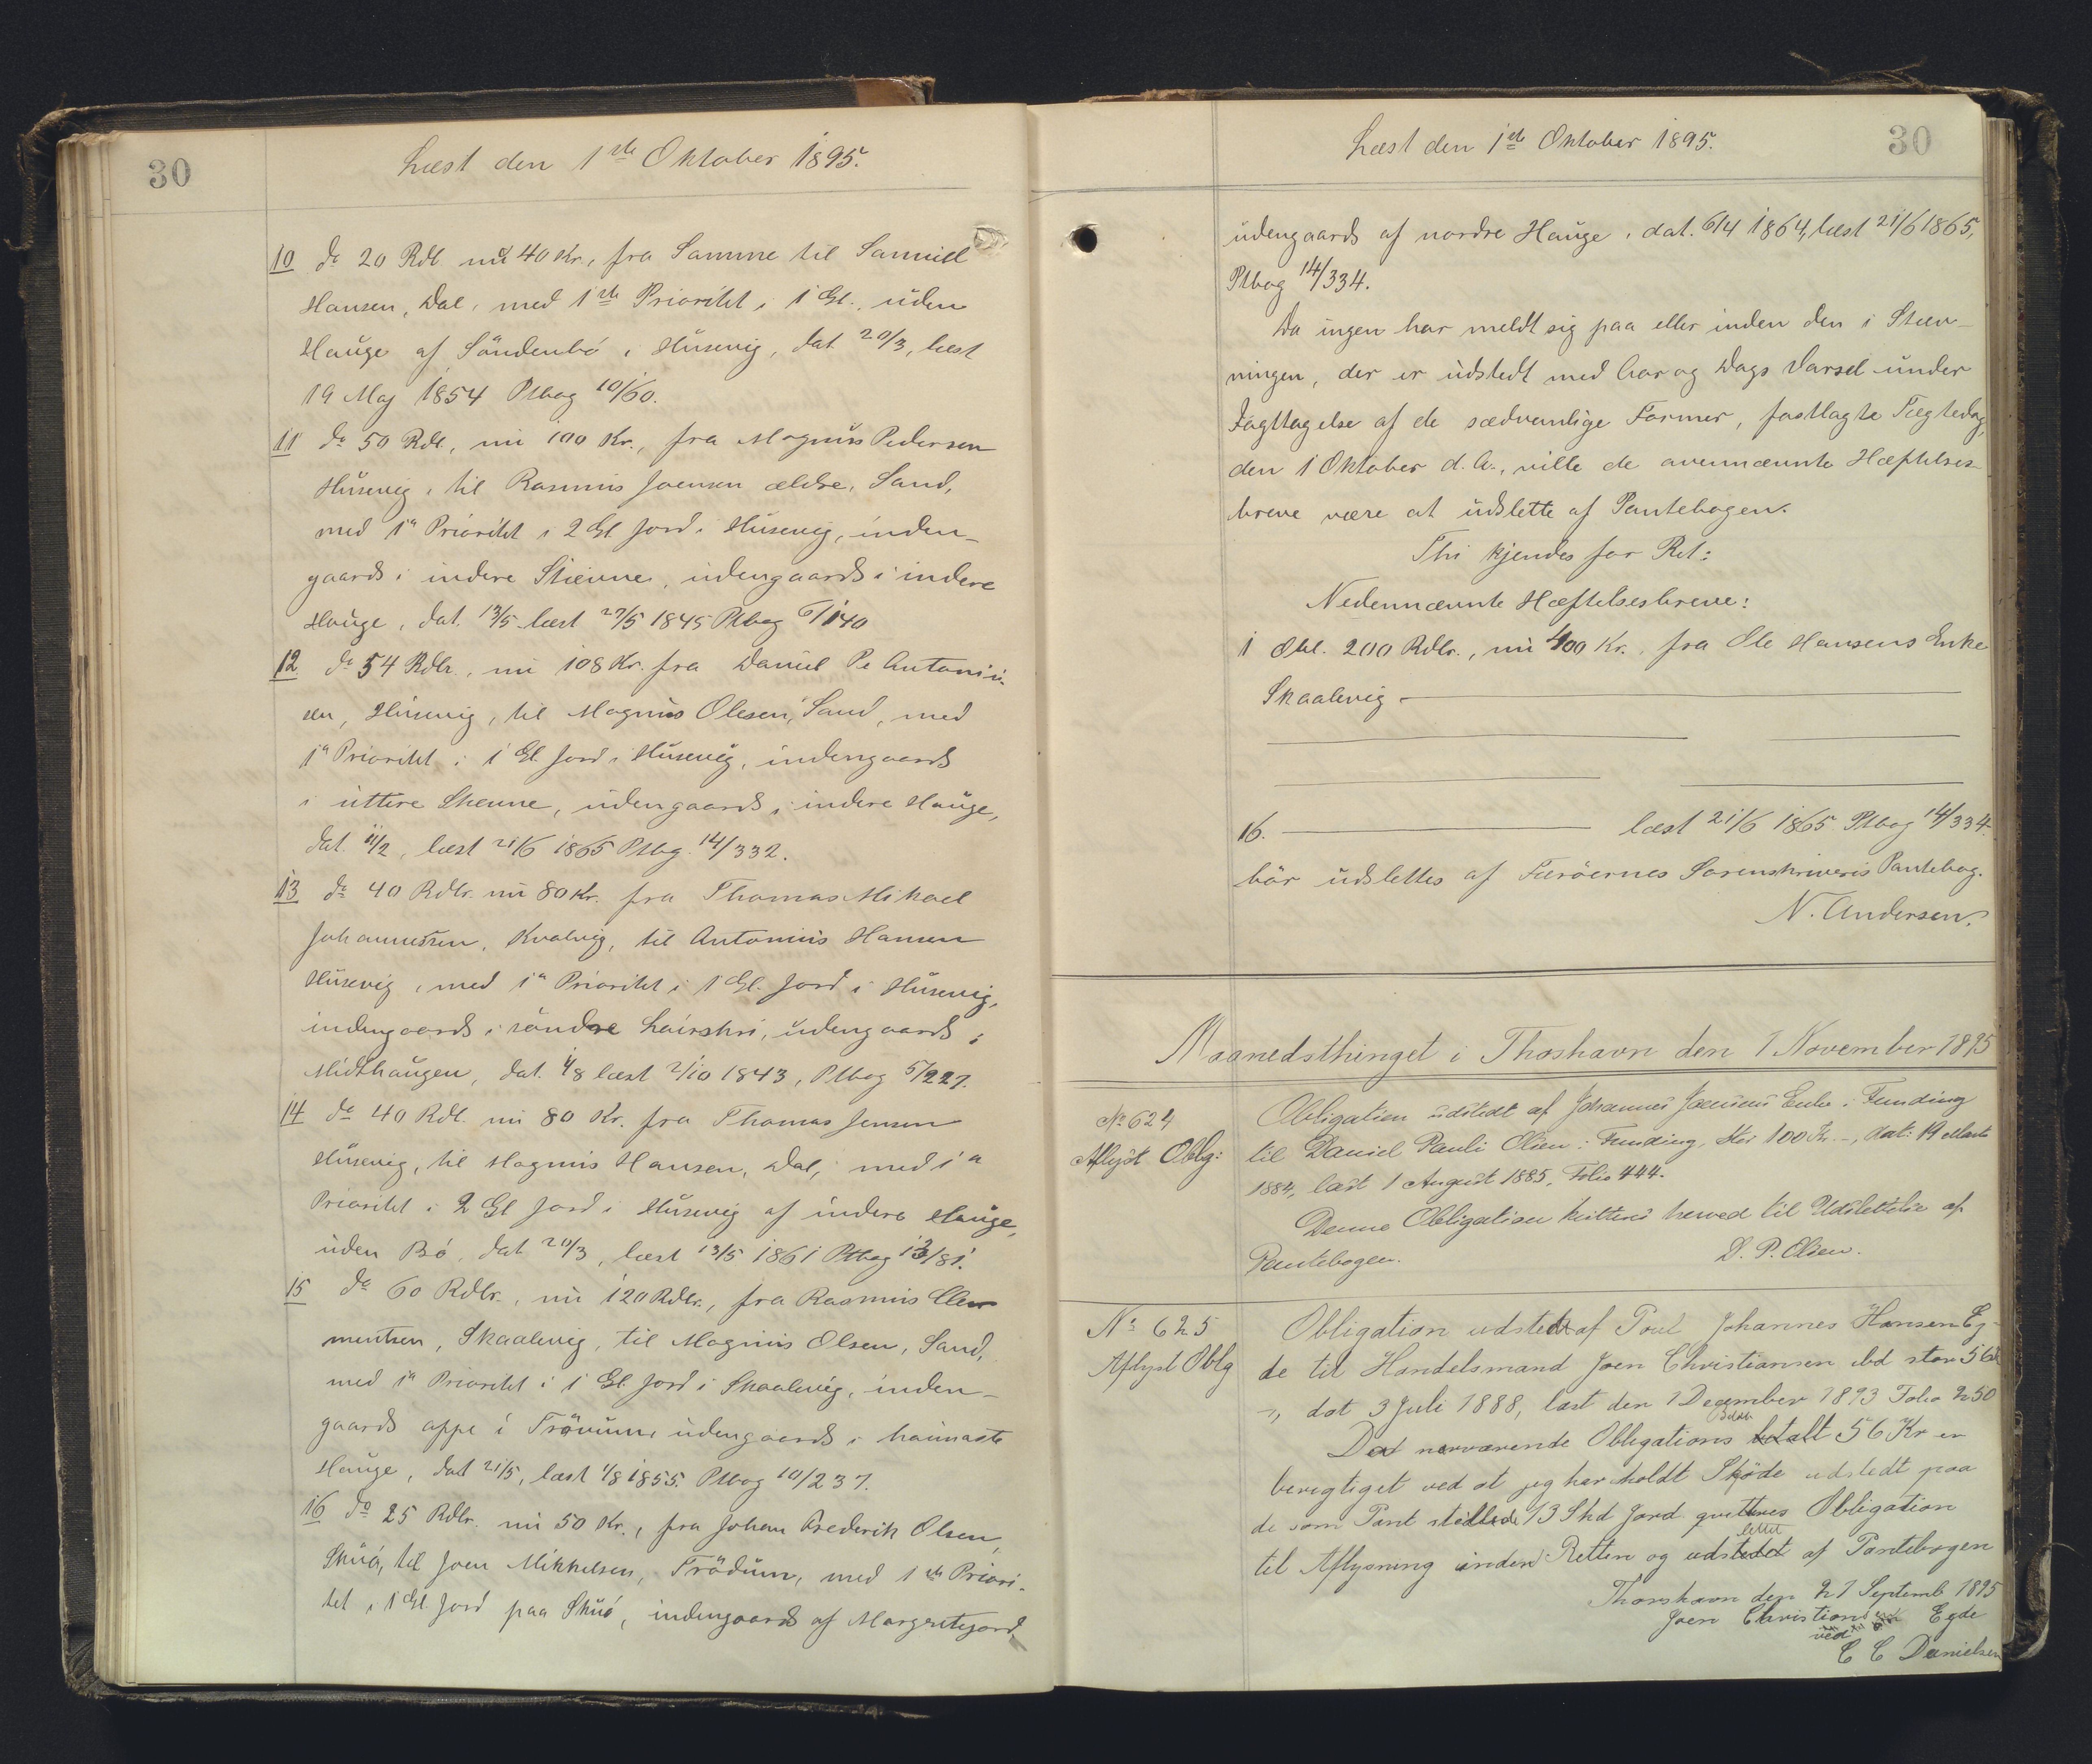 30
Læst den 1ste Oktober 1895.
10 do 20 Rdl nu 40 Kr., fra Samme til Samuel
Hansen, Dal, med 1ste Prioritet i 1 Gl., uden
Hauge af Söndenbö i Husevig, dat. 20/3, læst
19 Maj 1854 Ptbog 10/60.
11 do 50 Rdl., nu 100 Kr., fra Magnus Pedersen
Husevig, til Rasmus Joensen ældre, Sand,
med 1a Prioritet i 2 Gl Jord i Husevig, inden-
gaards i indere Stievne, udengaards i indere
Hauge, dat. 13/5 læst 27/5 1845 Ptbog 6/140
12 do 54 Rdlr., nu 108 Kr. fra Daniel Pe Antonii-
sen, Husevig, til Magnus Olesen, Sand, med
1a Prioritet i 1 Gl Jord i Husevig, indengaards
i uttere Stevne, udengaards i indere Hauge,
dat. 11/2, læst 21/6 1865 Ptbg. 14/332.
13 do 40 Rdlr. nu 80 Kr. fra Thomas Mikael
Johannessen, Kvalvig, til Antonius Hansen
Husevig, med 1a Prioritet i 1 Gl. Jord i Husevig,
indengaards i söndre udengaards i
Midthaugen, dat. 1/8 læst 2/10 1843, Ptbog 5/227.
14 do 40 Rdl. nu 80 Kr. fra Thomas Jensen
Husevig, til Magnus Hansen, Dal, med 1a
Prioritet i 2 Gl Jord i Husevig af indere Hauge,
uden Bö, dat. 20/3, læst 13/5 1861 Ptbog 13/81.
15 do 60 Rdlr., nu 120 Rdlr., fra Rasmus Cle
mentsen, Skaalevig, til Magnus Olsen, Sand,
med 1a Prioritet i 1 Gl. Jord i Skaalevig, inden-
gaards oppe i udengaards i haimaste
Hauge, dat 21/5, læst 1/8 1855. Ptbog 10/237.
16 do 25 Rdlr. nu 50 Kr., fra Johan Frederik Olsen,
Skuö, til Joen Mikkelsen, Trödum, med 1ste Priori-
tet i 1 Gl. Jord paa Skuö, indengaards af Margretejord,
Læst den 1ste Oktober 1895.
30
udengaards af nordre Hauge, dat. 6/4 1864, læst 21/6 1865,
Ptbog 14/334.
Da ingen har meldt sig paa eller inden den i Stæv-
ningen, der er udstedt med Aar og Dags Varsel under
Iagttagelse af de sædvanlige Former, fastlagte Tægtedag,
den 1 Oktober d.A., ville de ovennævnte Hæftelses-
breve være at udslette af Pantebogen.
Thi kjendes for Ret:
Nedennævnte Hæftelsesbreve:
1 Obl. 200 Rdlr., nu 400 Kr., fra Ole Hansens Enke
Skaalevig
16. læst 21/6 1865 Ptbog 14/334.
bör udslettes af Færöernes Sorenskriveris Pantebog.
N. Andersen.
Maanedsthinget i Thorshavn den 1 November 1895
No 624
Aflyst Oblg:
Obligation udstedt af Johannes Joensens Enke i Funding
til Daniel Pauli Olsen i Funding, stor 100 Kr. -, dat: 19 Marts
1884, læst 1 August 1885, Folio 444.
Denne Obligation kvitteres herved til Udslettelse af
Pantebogen. D. P. Olsen.
No 625
Aflyst Oblg
Obligation udstedt af Poul Johannes Hansen Eg-
de til Handelsmand Joen Christiansen ibd stor 56
dat 3 Juli 1888, læst den 1 December 1893 Folio 250
Da nærværende Obligations 56 Kr er
berigtiget ved at jeg har holdt Skjöde udstedt paa
de som Pant stillede 13 Skd Jord qvitteres Obligation
til Aflysning inden Retten og af Pantebogen
Thorshavn den 27 Septemb 1895
Joen Christiansen Egde
ved
C C Danielsen